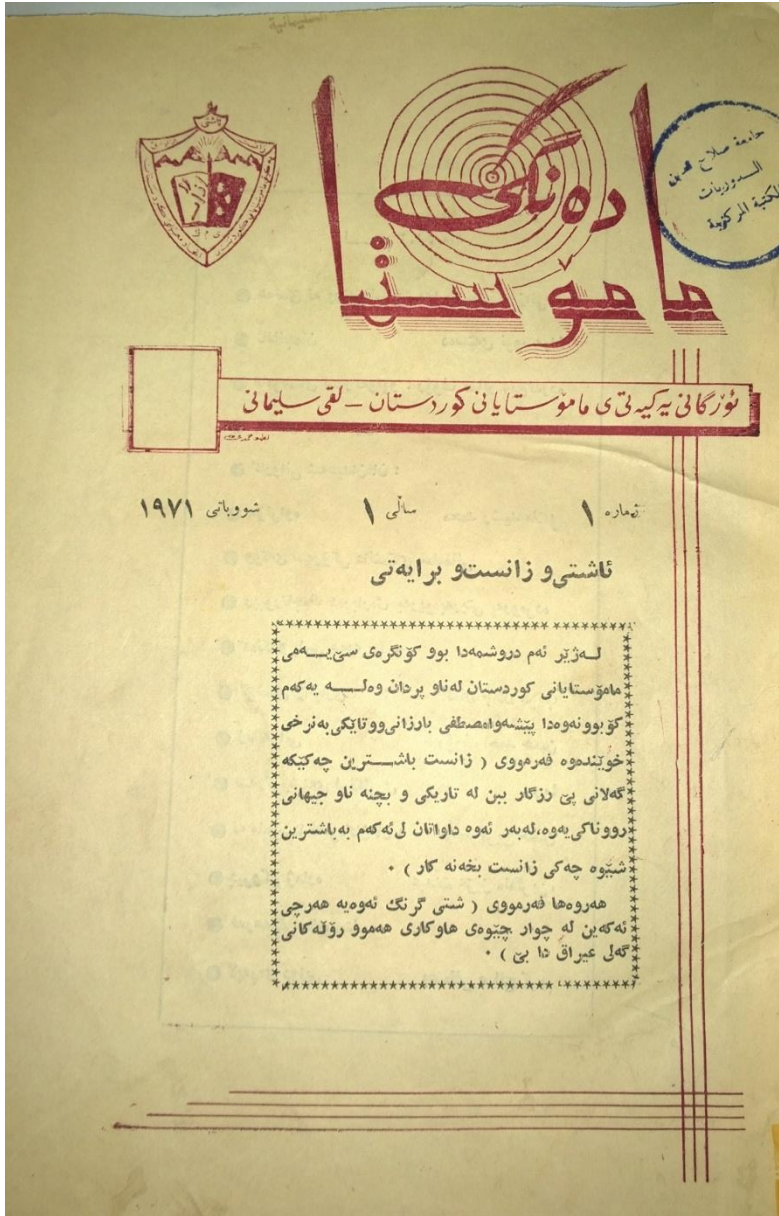 دەنگی
مامۆستا
جامعة صلاح الدين
الدوريات
المكتبة المركزية
ئۆرگانی یەکیەتی ی مامۆستایانی کوردستان – لقی سلیمانی
ژمارە ١ ساڵی ١ شووباتی ١٩٧١
ئاشتی و زانست و برایەتی
لــەژێر ئەم دروشمەدا بوو کۆنگرەی سێ یــەمی
مامۆستایانی کوردستان لەناو پردان وەلــە یەکەم
کۆبوونەوەدا پێشەوامصطفی بارزانی ووتاێکی بەنرخی
خوێندەوە فەرمووی ( زانست باشــترین چەکێکە
گەلانی پێ رزگار ببن لە تاریکی و بچنە ناو جیهانی
رووناکی یەوە،لەبەر ئەوە داواتان لی ئەکەم بەباشترین
شێوە چەکی زانست بخەنە کار ) ٠
هەروەها فەرمووی ( شتی گرنگ ئەوەیە هەرچی
ئەکەین لە چوار چێوەی هاوکاری هەموو رۆڵەکانی
گەلی عیراق دا بێ ) ٠